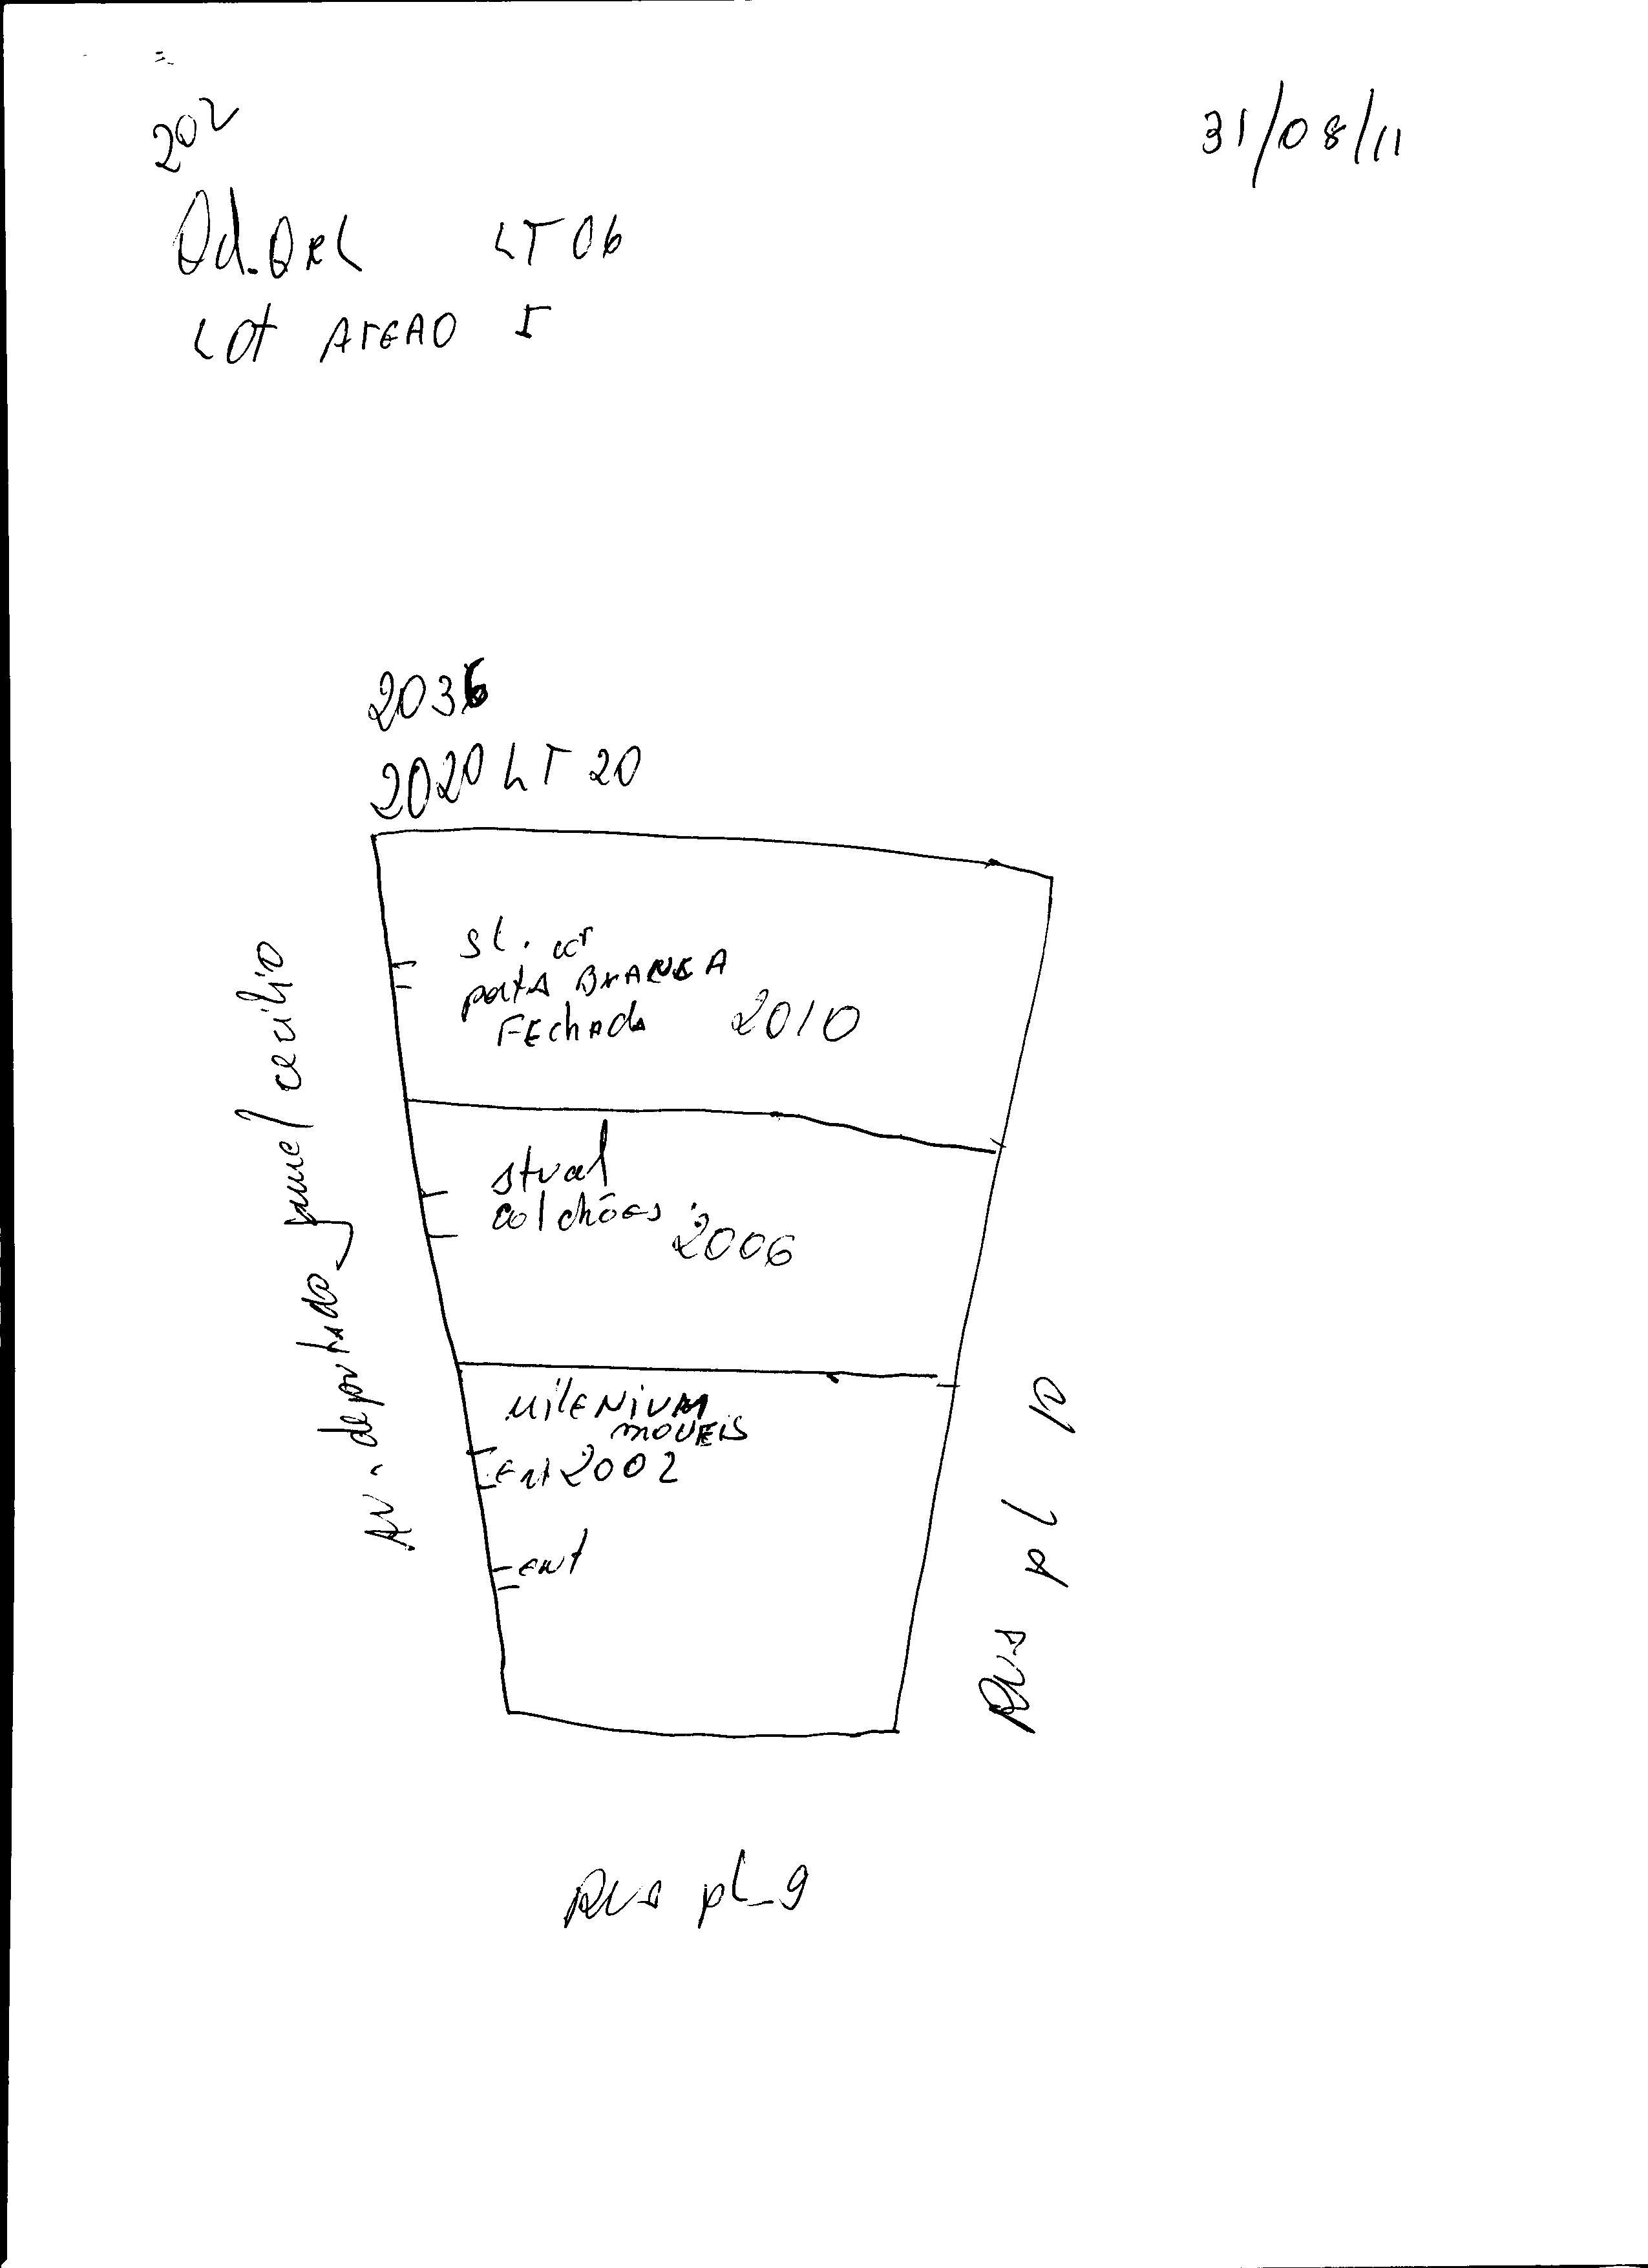 202
31/08/11
Qd. QRL LT 06
Lot AREAO I
2036
2020 LT 20
SL.
porta BRANCA
FEchada 2010
stual
colchões 2006
MILENIUM
MOVEIS
Ent 2002
ent
Av. deputado Jamel cecilio
Rua pl 10
Rua pL_9